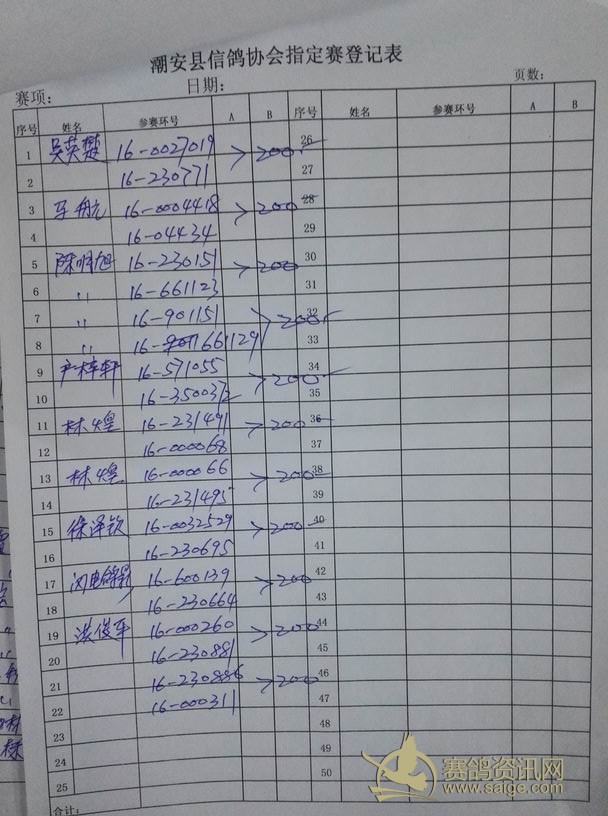 潮安县信鸽协会指定赛登记表
赛项: 日期: 页数:
序号 姓名 参赛环号 A B 序号 姓名 参赛环号 A B
1 吴英楚 16-0027019 >200 26
2 16-230771 27
3 马航 16-0004418 >200 28
4 16-04434 29
5 陈明旭 16-230151 >200 30
6 〃 16-661123 31
7 〃 16-901151 >200 32
8 〃 16-661129 33
9 卢梓轩 16-571055 >200 34
10 16-350032 35
11 林煌 16-231491 >200 36
12 16-000068 37
13 林煌 16-000066 >200 38
14 16-231495 39
15 徐泽钦 16-0032529 >200 40
16 16-230695 41
17 闪电鸽 16-600139 >200 42
18 16-230664 43
19 洪俊平 16-000260 >200 44
20 16-230881 45
21 16-230886 >200 46
22 16-000311 47
23 48
24 49
25 50
合计:
赛鸽资讯网
www.saige.com